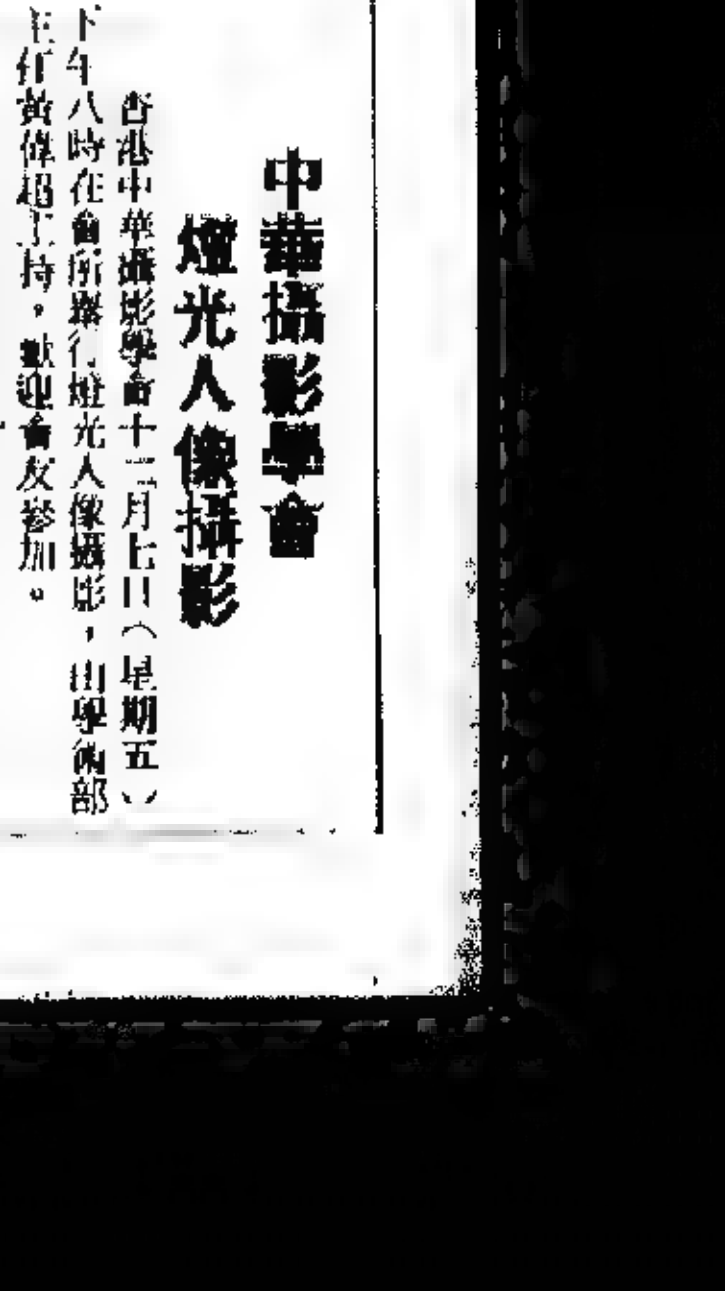 中華攝影學會
燈光人像攝影
香港中華攝影學會十二月七日（星期五）
下午八時在會所舉行燈光人像攝影，由學術部
主任黃偉超主持，歡迎會友參加。